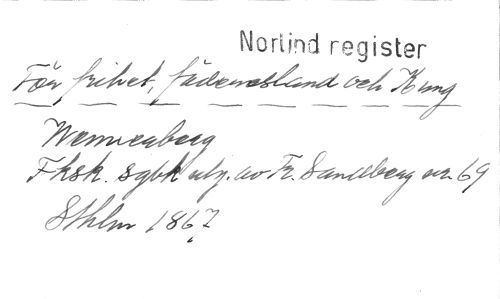 Norlind register
För frihet, fädernesland och Kung
Wennerberg
Fksk. sgbk utg. av Fr. Sandberg nr. 69
Sthlm 1867